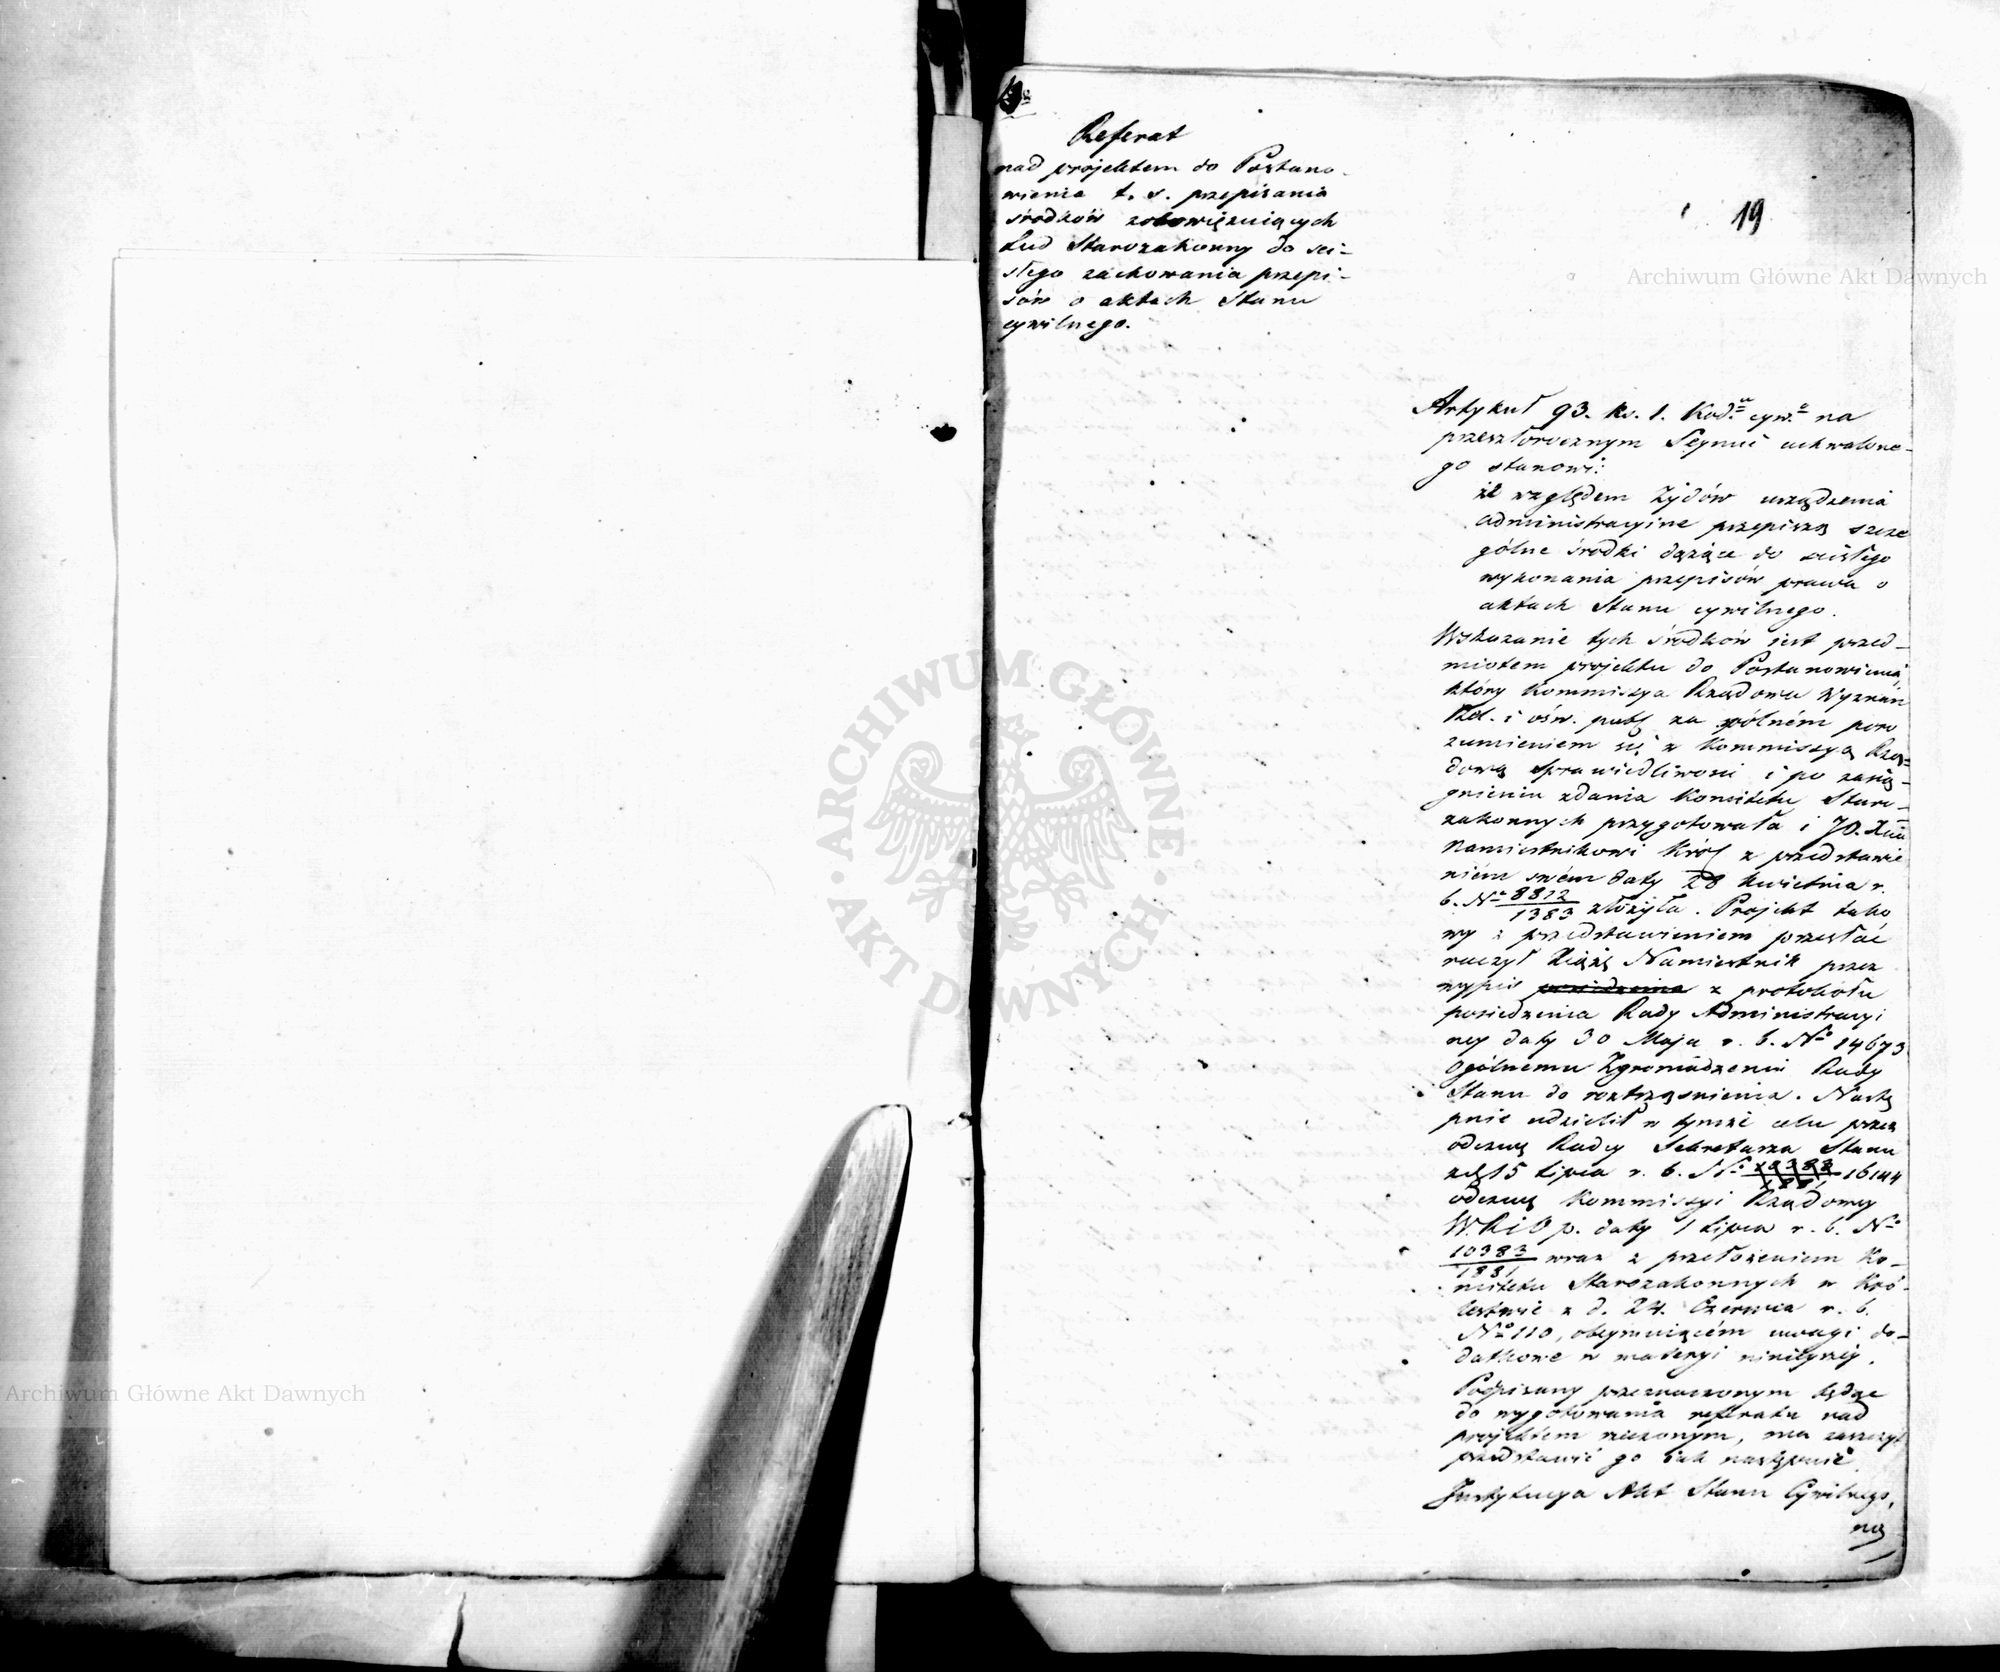 Referat
nad projektem do Postano-
wienia t. s. przepisania
środków zobowięzuiących
Lud Starozakonny do sci-
słego zachowania przepi-
sów o aktach Stanu
cywilnego.
19
Archiwum Główne Akt Dawnych
Artykuł 93. ks. 1. Kod. cyw. na
przeszłorocznym Seymie uchwalone-
go stanowi:
że względem Żydów urządzenia
administracyine przepiszą szcze
gólne środki dążące do scisłego
wykonania przepisów prawa o
aktach Stanu cywilnego.
Wskazanie tych środków iest przed-
miotem projektu do Postanowienia,
który Kommissya Rządowa Wyznań
Rel. i ośw. publ za spólném poro
zumieniem się z Kommissyą Rzą-
dową Sprawiedliwosci i po zasią-
gnieniu zdania Komitetu Staro-
zakonnych przygotowała i JO. Xciu
Namiestnikowi Król z przedstawie
niem swém daty 28 Kwietnia r.
b. No 8812/1383 złożyła. Projekt tako
wy z przedstawieniem przesłać
raczył Xiążę Namiestnik przez
wypis posiedzenia z protokołu
posiedzenia Rady Administracyi
ney daty 30 Maja r. b. No 14673
Ogólnemu Zgromadzeniu Rady
Stanu do roztrząsnienia. Nastę
pnie udzielił w tymże celu przez
odezwę Radcy Sekretarza Stanu
z d. 15 Lipca r. b. No 10383 16144
odezwę Kommissyi Rządowey
W. R i O p. daty 1 Lipca r. b. No
10383/1881 wraz z przełożeniem Ko-
mitetu Starozakonnych w Kró-
lestwie z d. 24. Czerwca r. b.
No 110, obeymuiącém uwagi do-
datkowe w materyi ninieyszéy.
Podpisany przeznaczonym będąc
do wygotowania referatu nad
projektem rzeczonym, ma zaszczyt
przedstawić go iak następuie
Instytucya Akt Stanu Cywilnego,
ARCHIWUM GŁÓWNE
AKT DAWNYCH
Archiwum Główne Akt Dawnych